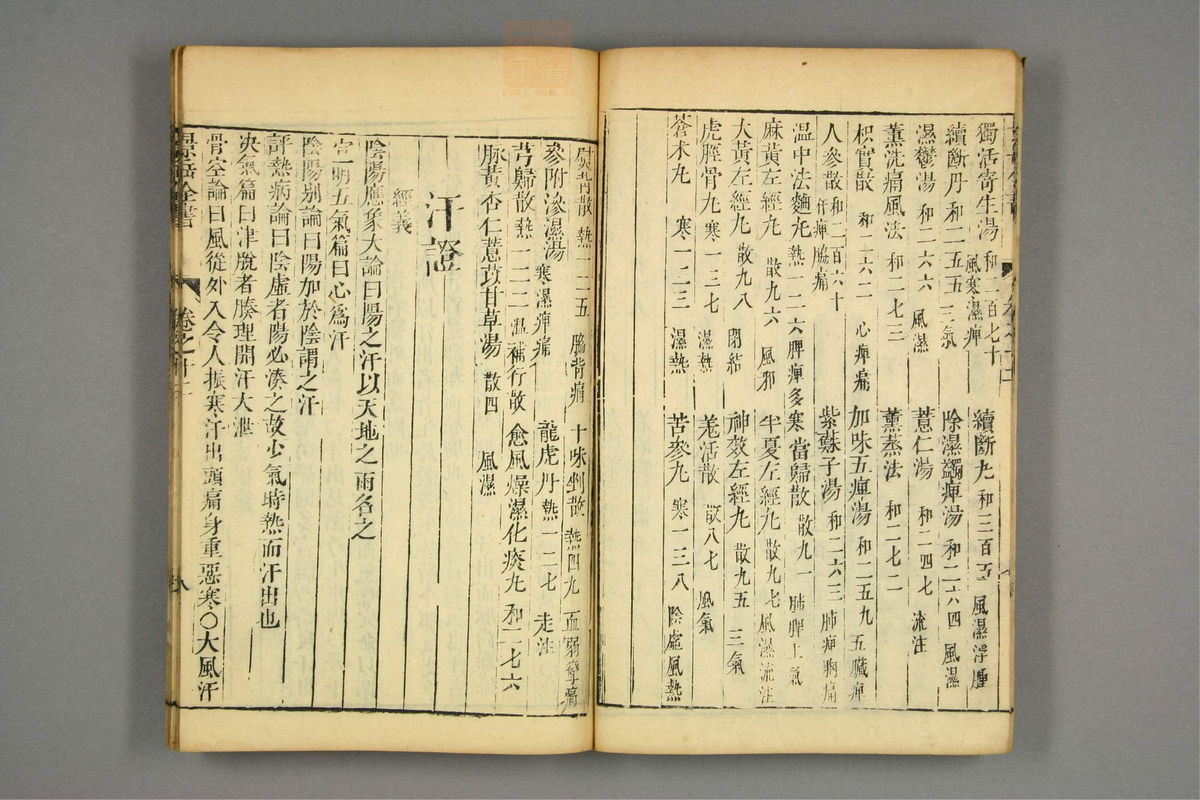 獨活寄生湯 和二百七十 風寒濕痺 續斷丸 和三百 風濕浮腫
續斷丹 和二五五 三氣 除濕蠲痺湯 和二六四 風濕
濕鬱湯 和二六六 風濕 薏仁湯 和二四七 流注
薰洗痛風法 和二七三 薰蒸法 和二七二
枳實散 和二六二 心痺痛 加味五痺湯 和二五九 五臟痺
人參散 和二百六十 肝痺脇痛 紫蘇子湯 和二六三 肺痺胸痛
溫中法麯丸 熱一二六 脾痺多寒 當歸散 散九一 肺脾上氣
麻黃左經丸 散九六 風邪 半夏左經丸 散九七 風濕流注
大黃左經丸 散九八 閉結 神效左經丸 散九五 三氣
虎脛骨丸 寒一三七 濕熱 羌活散 散八七 風氣
蒼朮丸 寒一二三 濕熱 苦參丸 寒一三八 陰虛風熱
熱一二五 脇背痛 十味剉散 熱四九 血弱攣痛
參附滲濕湯 寒濕痺痛 龍虎丹 熱一二七 走注
芎歸散 熱一二二 溫補行散 愈風燥濕化痰丸 和二七六
脉黃杏仁薏苡甘草湯 散四 風濕
汗證
經義
陰陽應象大論曰陽之汗以天地之雨名之
宣明五氣篇曰心為汗
陰陽別論曰陽加於陰謂之汗
評熱病論曰陰虛者陽必湊之故少氣時熱而汗出也
決氣篇曰津脫者腠理開汗大泄
骨空論曰風從外入令人振寒汗出頭痛身重惡寒○大風汗
景岳全書
卷之十二
八